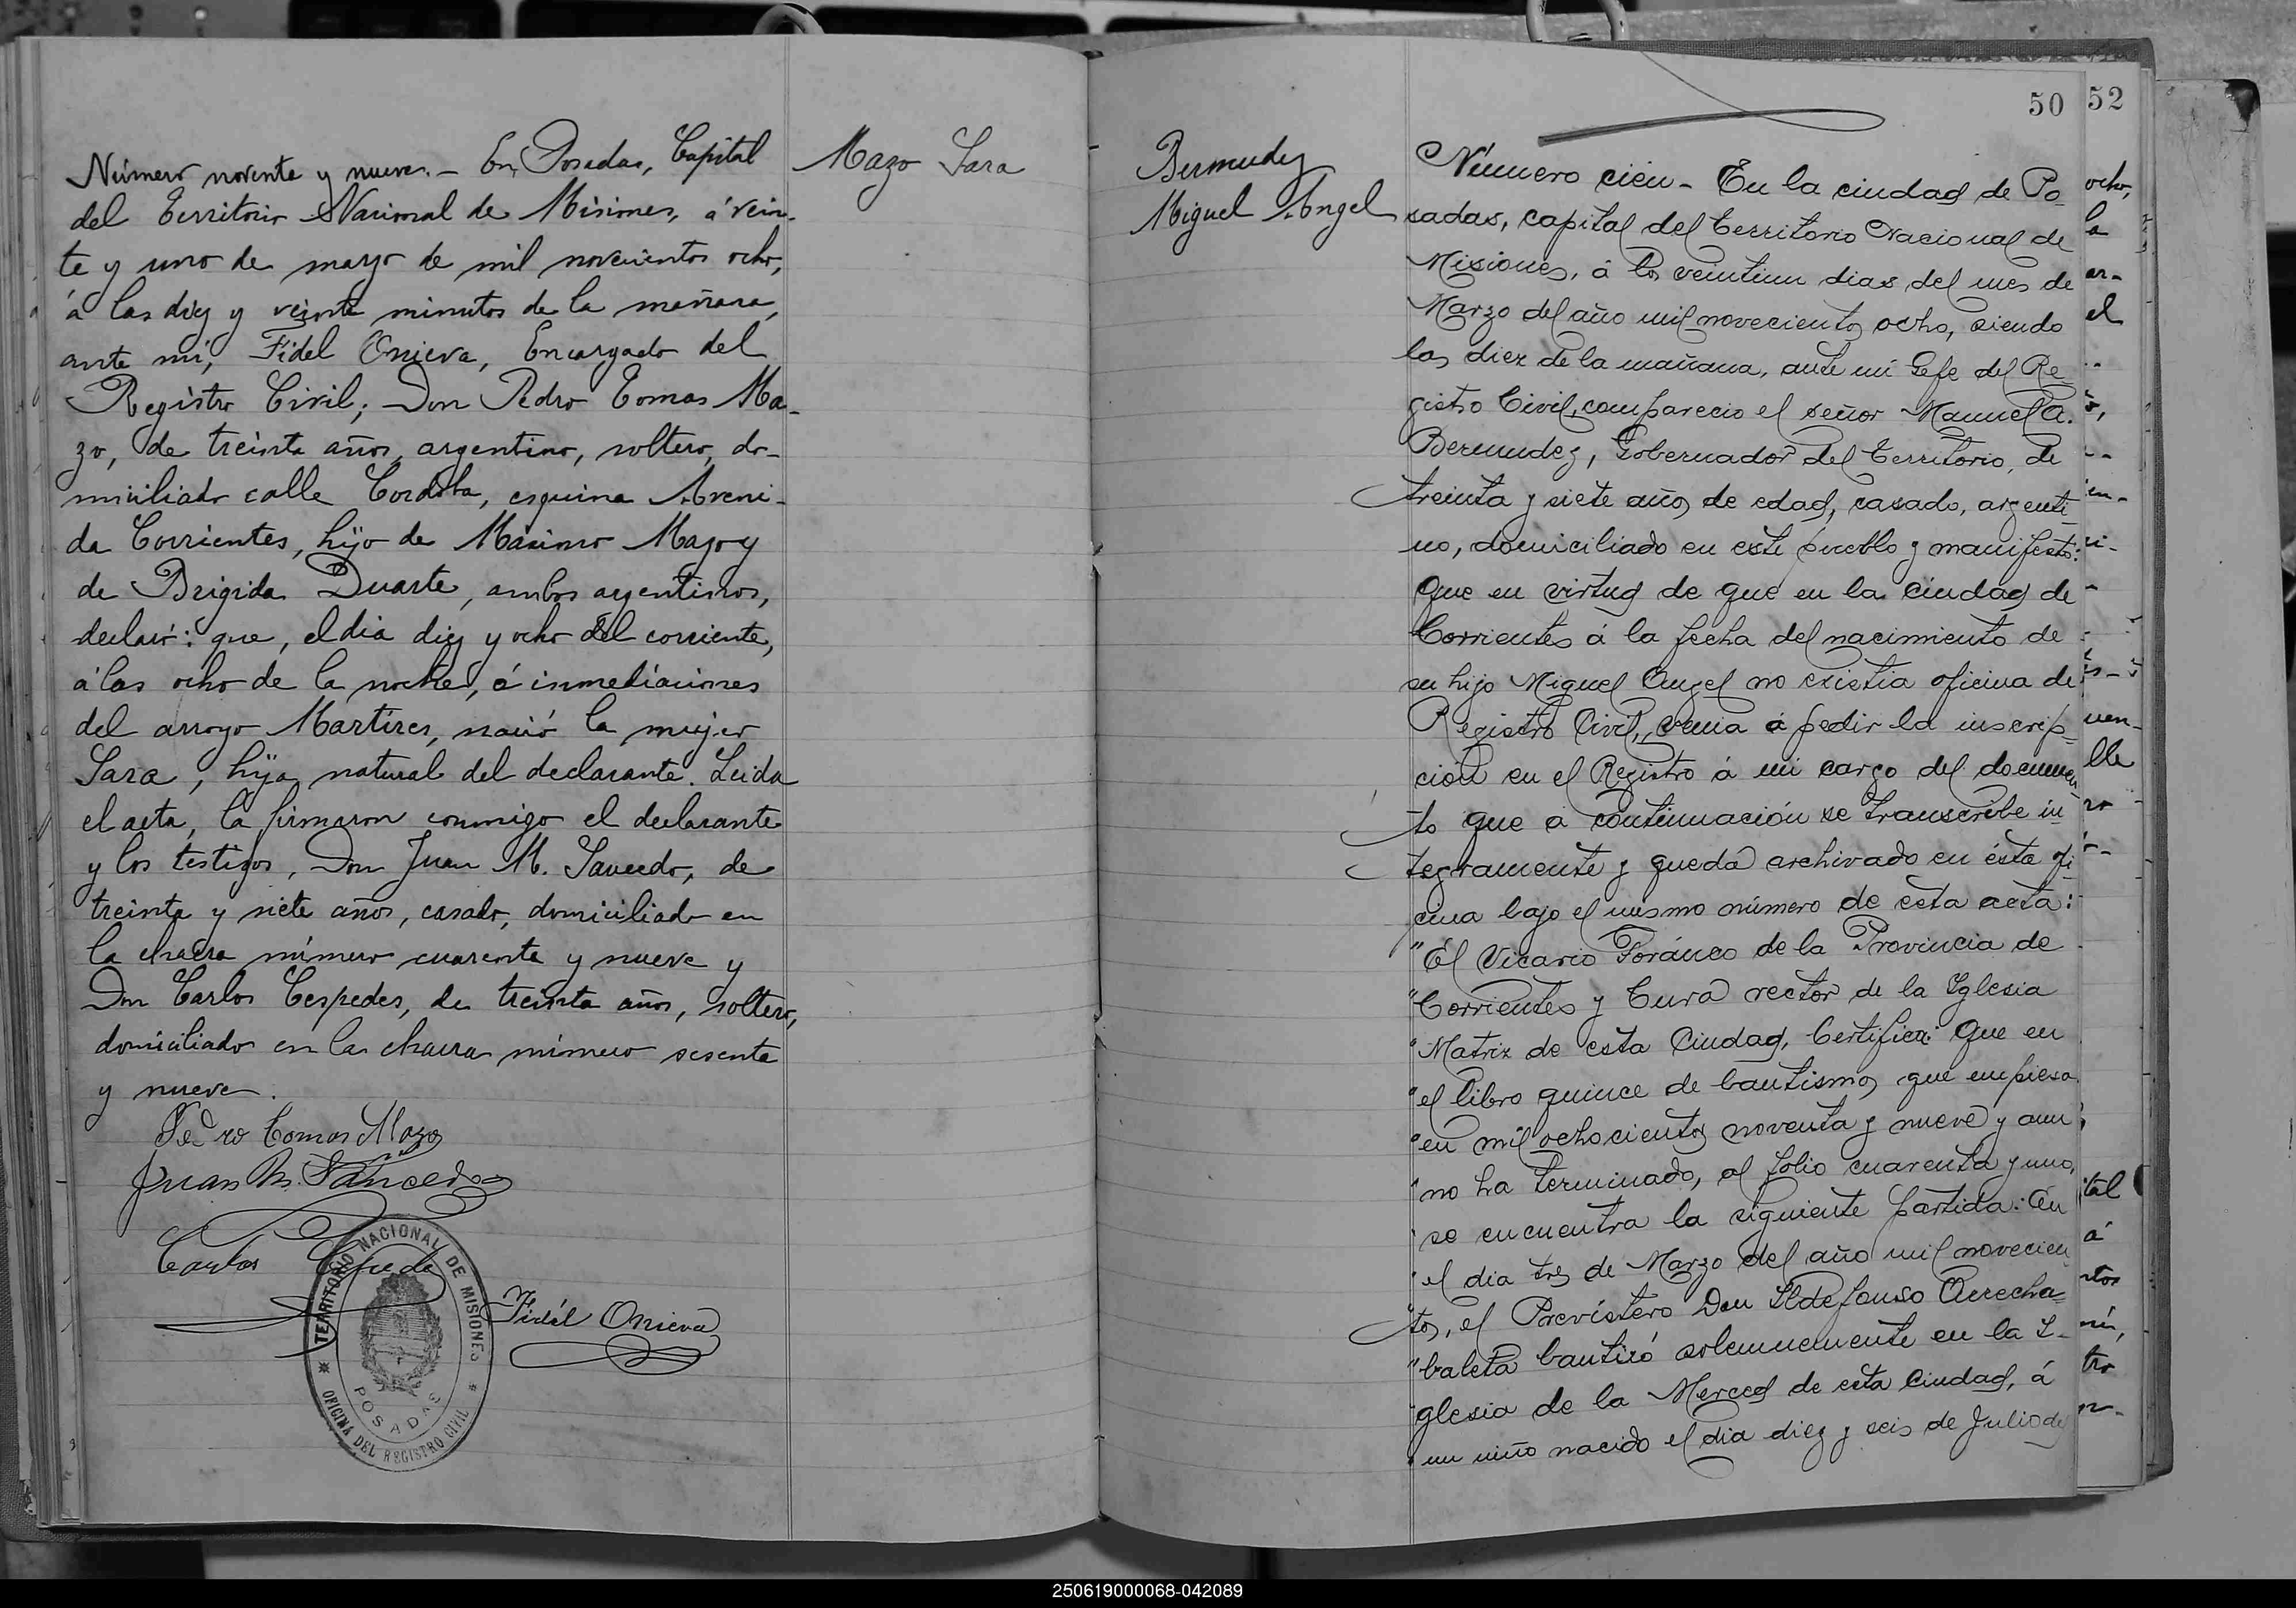 Número noventa y nueve. - En Posadas, Capital
del Territorio Nacional de Misiones, á vein-
te y uno de marzo de mil novecientos ocho,
á las diez y veinte minutos de la mañana,
ante mí, Fidel Onieva, Encargado del
Registro Civil; Don Pedro Tomas Ma-
zo, de treinta años, argentino, soltero, do-
miciliado calle Cordoba, esquina Aveni-
da Corrientes, hijo de Maximo Mazo y
de Brigida Duarte, ambos argentinos,
declaró: que, el dia diez y ocho del corriente,
á las ocho de la noche, á inmediaciones
del arroyo Martires, nació la mujer
Sara, hija natural del declarante. Leida
el acta, la firmaron conmigo el declarante
y los testigos, Don Juan M. Saucedo, de
treinta y siete años, casado, domiciliado en
la chacra número cuarenta y nueve y
Don Carlos Cespedes, de treinta años, soltero,
domiciliado en la chacra número sesenta
y nueve.
Pedro Tomas Mazo
Juan M. Saucedo
Carlos Cespedes
Fidél Onieva
TERRITORIO NACIONAL DE MISIONES
POSADAS
OFICINA DEL REGISTRO CIVIL
Mazo Sara
50
Bermudez
Miguel Angel
Número cien - En la ciudad de Po
sadas, capital del Territorio Nacional de
Misiones, á los veintiun dias del mes de
Marzo del año mil novecientos ocho, siendo
las diez de la mañana, ante mi Gefe del Re
gistro Civil, comparecio el señor Manuel A.
Bermudez, Gobernador del Territorio, de
treinta y siete años de edad, casado, argenti
no, domiciliado en este pueblo y manifestó:
Que en virtud de que en la Ciudad de
Corrientes á la fecha del nacimiento de
su hijo Miguel Angel no existia oficina de
Registro Civil, venia á pedir la inscrip
ción en el Registro á mi cargo del documen
to que á continuación se transcribe in
tegramente y queda archivado en ésta ofi
cina bajo el mismo número de esta acta:
"El Vicario Foráneo de la Provincia de
"Corrientes y Cura rector de la Iglesia
"Matriz de esta Ciudad, Certifica: Que en
"el libro quince de bautismos que empieza
"en mil ochocientos noventa y nueve y aun
"no ha terminado, al folio cuarenta y uno,
"se encuentra la siguiente partida: En
"el dia tres de Marzo del año mil novecien
"tos, el Presvístero Don Ildefonso Arrecha
"baleta bautizó solemnemente en la I-
"glesia de la Merced de esta Ciudad, á
"un niño nacido el dia diez y seis de Julio de
52
ocho,
la
ar-
el
tal
á
ntos
mí,
tro
250619000068-042089